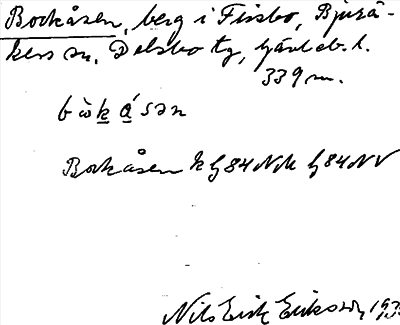 Bockåsen, berg i Fissbo, Bjurå-
kers sn, Delsbo tg, Gävleb. l.
339 m.
bòkåsən
Bockåsen k bj 84 NM bj 84 NV
Nils Erik Eriksson, 193